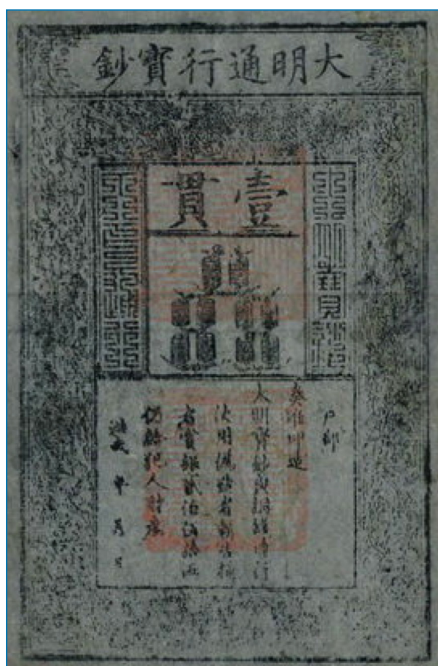 大明通行寶鈔
壹貫
户部
奏准印造
大明寶鈔與銅錢通行
使用僞造者斬告捕
者賞銀貳伯伍拾兩
仍給犯人財産
洪武 年 月 日